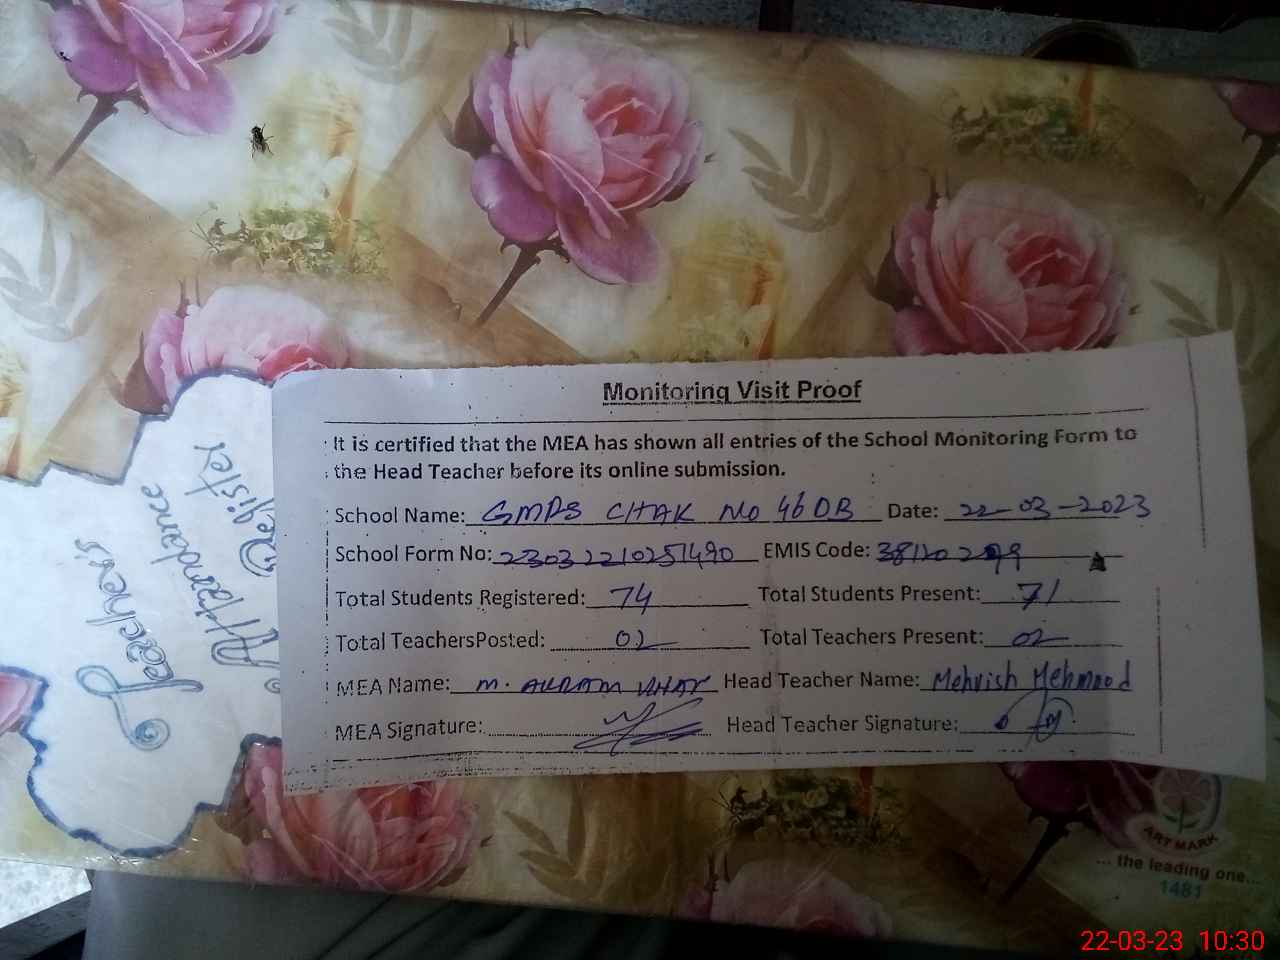 Monitoring Visit Proof
It is certified that the MEA has shown all entries of the School Monitoring Form to
the Head Teacher before its online submission.
School Name: GMPS CHAK No 46 DB Date: 22-03-2023
School Form No: 23032210251490 EMIS Code: 38120299
Total Students Registered: 74 Total Students Present: 71
Total TeachersPosted: 02 Total Teachers Present: 02
MEA Name: M. AKRAM Head Teacher Name: Mehvish Mehmood
MEA Signature: Head Teacher Signature:
Teachers
Attendance
Register
ART MARK
... the leading one...
1481
22-03-23 10:30